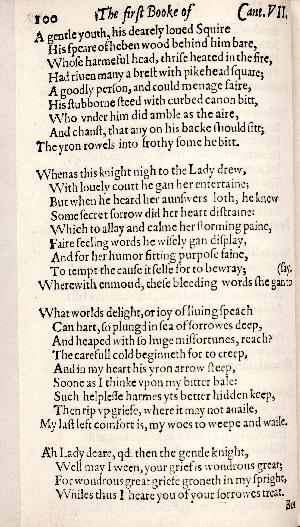 100 The first Booke of Cant. VII.
A gentle youth, his dearely loued Squire
His speare of heben wood behind him bare,
Whose harmeful head, thrise heated in the fire,
Had riuen many a brest with pikehead square;
A goodly person, and could menage faire,
His stubborne steed with curbed canon bitt,
Who vnder him did amble as the aire,
And chauft, that any on his backe should sitt;
The yron rowels into frothy fome he bitt.
Whenas this knight nigh to the Lady drew,
With louely court he gan her entertaine;
But when he heard her aunswers loth, he knew
Some secret sorrow did her heart distraine:
Which to allay and calme her storming paine,
Faire feeling words he wisely gan display,
And for her humor fitting purpose faine,
To tempt the cause it selfe for to bewray;
Wherewith enmoud, these bleeding words she gan to (say.
What worlds delight, or ioy of liuing speach
Can hart, so plungd in sea of sorrowes deep,
And heaped with so huge misfortunes, reach?
The carefull cold beginneth for to creep,
And in my heart his yron arrow steep,
Soone as I thinke vpon my bitter bale:
Such helplesse harmes yts better hidden keep,
Then rip vp griefe, where it may not auaile,
My last left comfort is, my woes to weepe and waile.
Ah Lady deare, qd. then the gentle knight,
Well may I ween, your grief is wondrous great;
For wondrous great griefe groneth in my spright,
Whiles thus I heare you of your sorrowes treat.
But